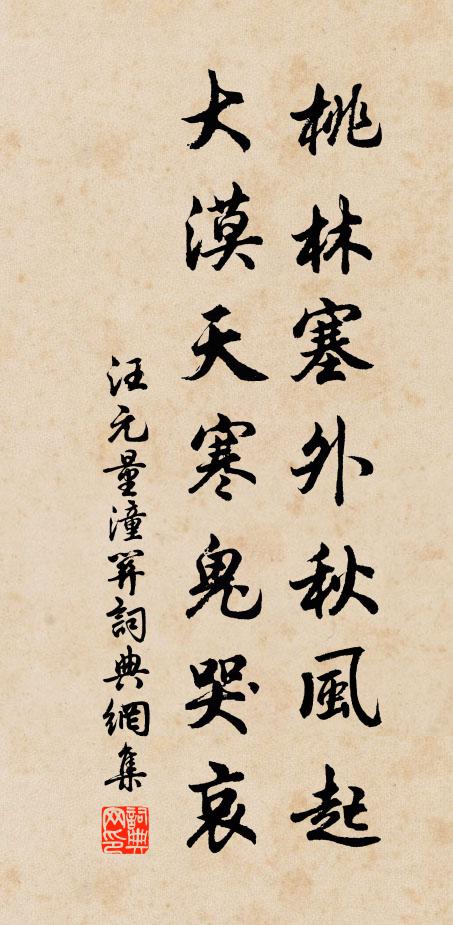 桃林塞外秋風起
大漠天寒鬼哭哀
汪元量潼関詞典網集
詞典网印